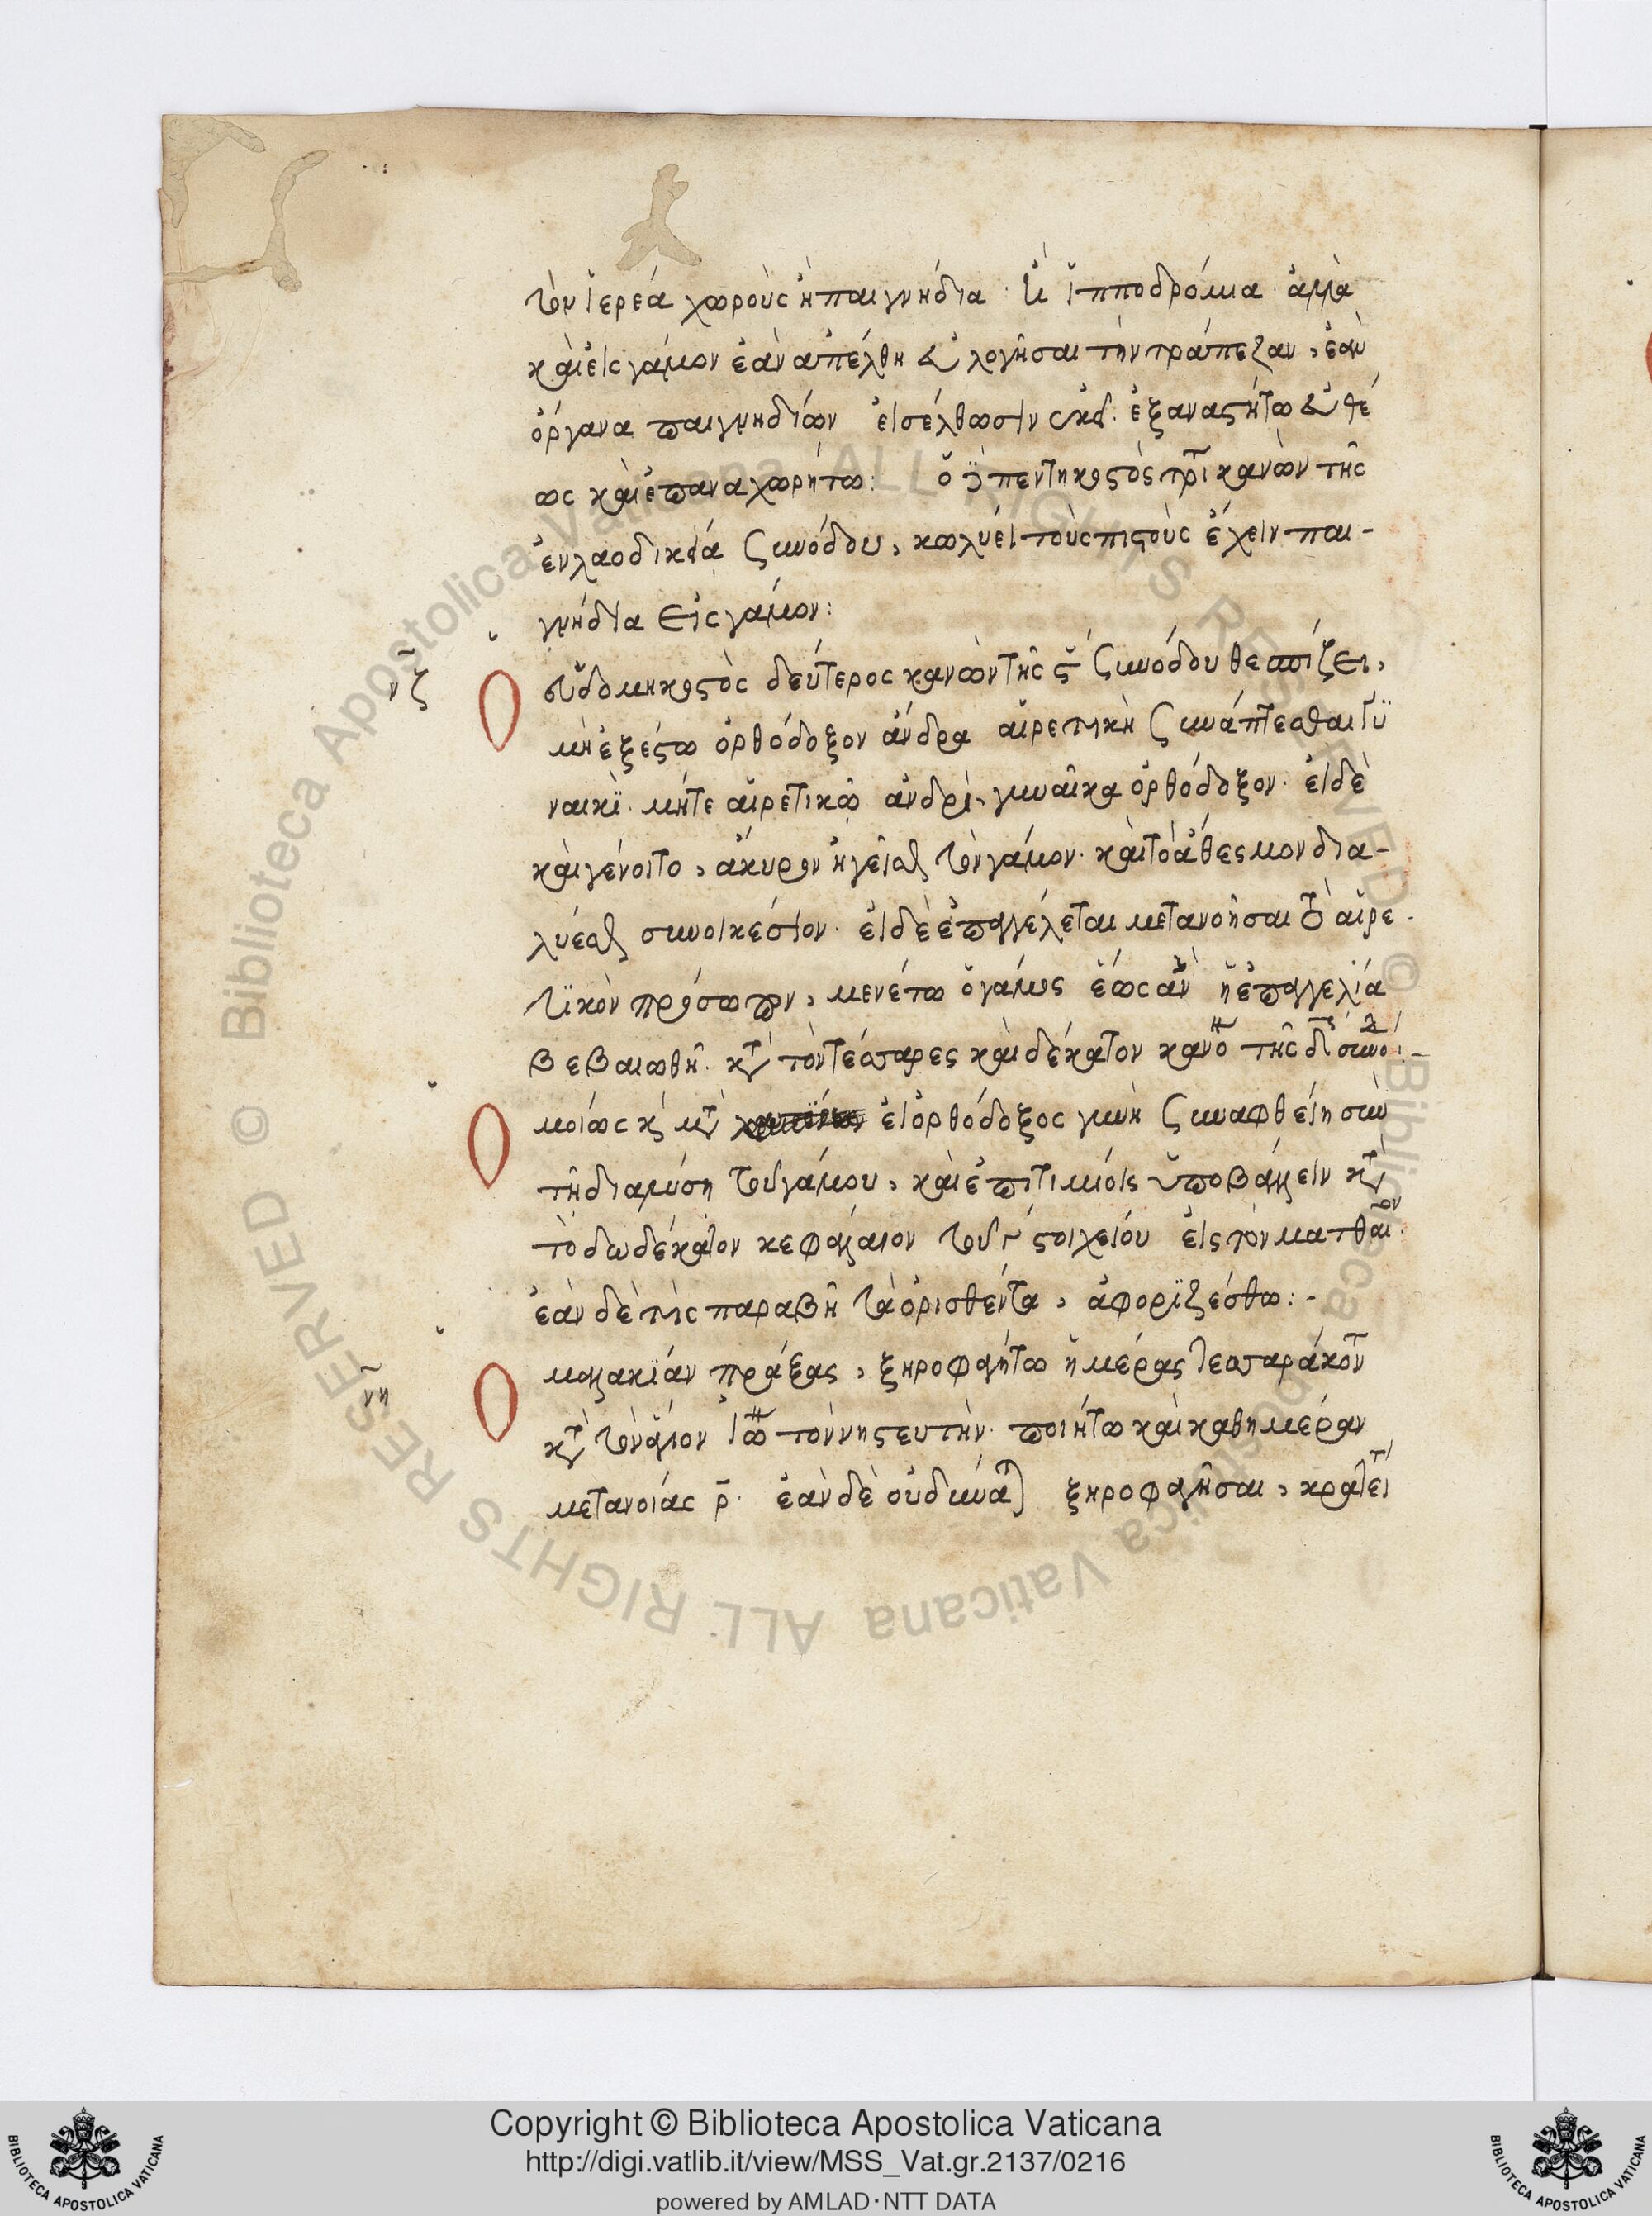 τὸν ἱερέα χωροὺς ἢ παιγνήδια· ἢ ἱπποδρόμια· ἀλλὰ
καὶ εἰς γάμον ἐὰν ἀπέλθη εὐλογῆσαι τὴν τράπεζαν, ἐὰν
ὄργανα παιγνηδίων εἰσέλθωσιν ἐκεῖ. ἐξαναστήτω εὐθέ
ως καὶ ἐπαναχωρήτω: ὁ πεντηκοστὸς τρί κανὼν τῆς
ἐν λαοδικεία συνόδου, κωλύει τοὺς πιστοὺς ἔχειν παι-
γνήδια εἰς γάμον:
νζ
Ὁ εὐδομηκοστὸς δεύτερος κανὼν τῆς ϛ συνόδου θεσπίζει,
μὴ ἐξέστω ὀρθόδοξον ἄνδρα αἱρετικὴ συνάπτεσθαι γυ
ναικὶ· μήτε αἱρετικῶ ἀνδρὶ, γυναῖκα ὀρθόδοξον· εἰ δὲ
καὶ γένοιτο, ἄκυρον ἡγεῖσθαι τὸν γάμον· καὶ τὸ ἄθεσμον δια-
λύεσθαι συνοικέσιον· εἰ δὲ ἐπαγγέλεται μετανοῆσαι τὸ αἱρε-
τικὸν πρόσωπον, μενέτω ὁ γάμος ἕως ἂν ἡ ἐπαγγελία
βεβαιωθῆ· κατὰ τὸν τέσσαρες καὶ δέκατον κανό τῆς δ συνό:-
Ὁμοίως καὶ εἰ ὀρθόδοξος γυνὴ συναφθείη σὺν
τῆ διαλύση τοῦ γάμου, καὶ ἐπιτιμίοις ὑποβάλλειν κατὰ
τὸ δωδέκατον κεφάλαιον τοῦ γ στοιχείου εἰς τὸν ματθαῖον·
ἐὰν δὲ τὶς παραβῆ τὰ ὁρισθέντα, ἀφοριζέσθω:-
νη
Ὁ μαλακίαν πράξας, ξηροφαγήτω ἡμέρας τεσσαράκοντ
κατὰ τὸν ἅγιον ἰω τὸν νηστευτὴν· ποιήτω καὶ καθημέραν
μετανοίας ρ· ἐὰν δὲ οὐ δύναται ξηροφαγῆσαι, κρατεῖ
Copyright © Biblioteca Apostolica Vaticana
http://digi.vatlib.it/view/MSS_Vat.gr.2137/0216
powered by AMLAD·NTT DATA